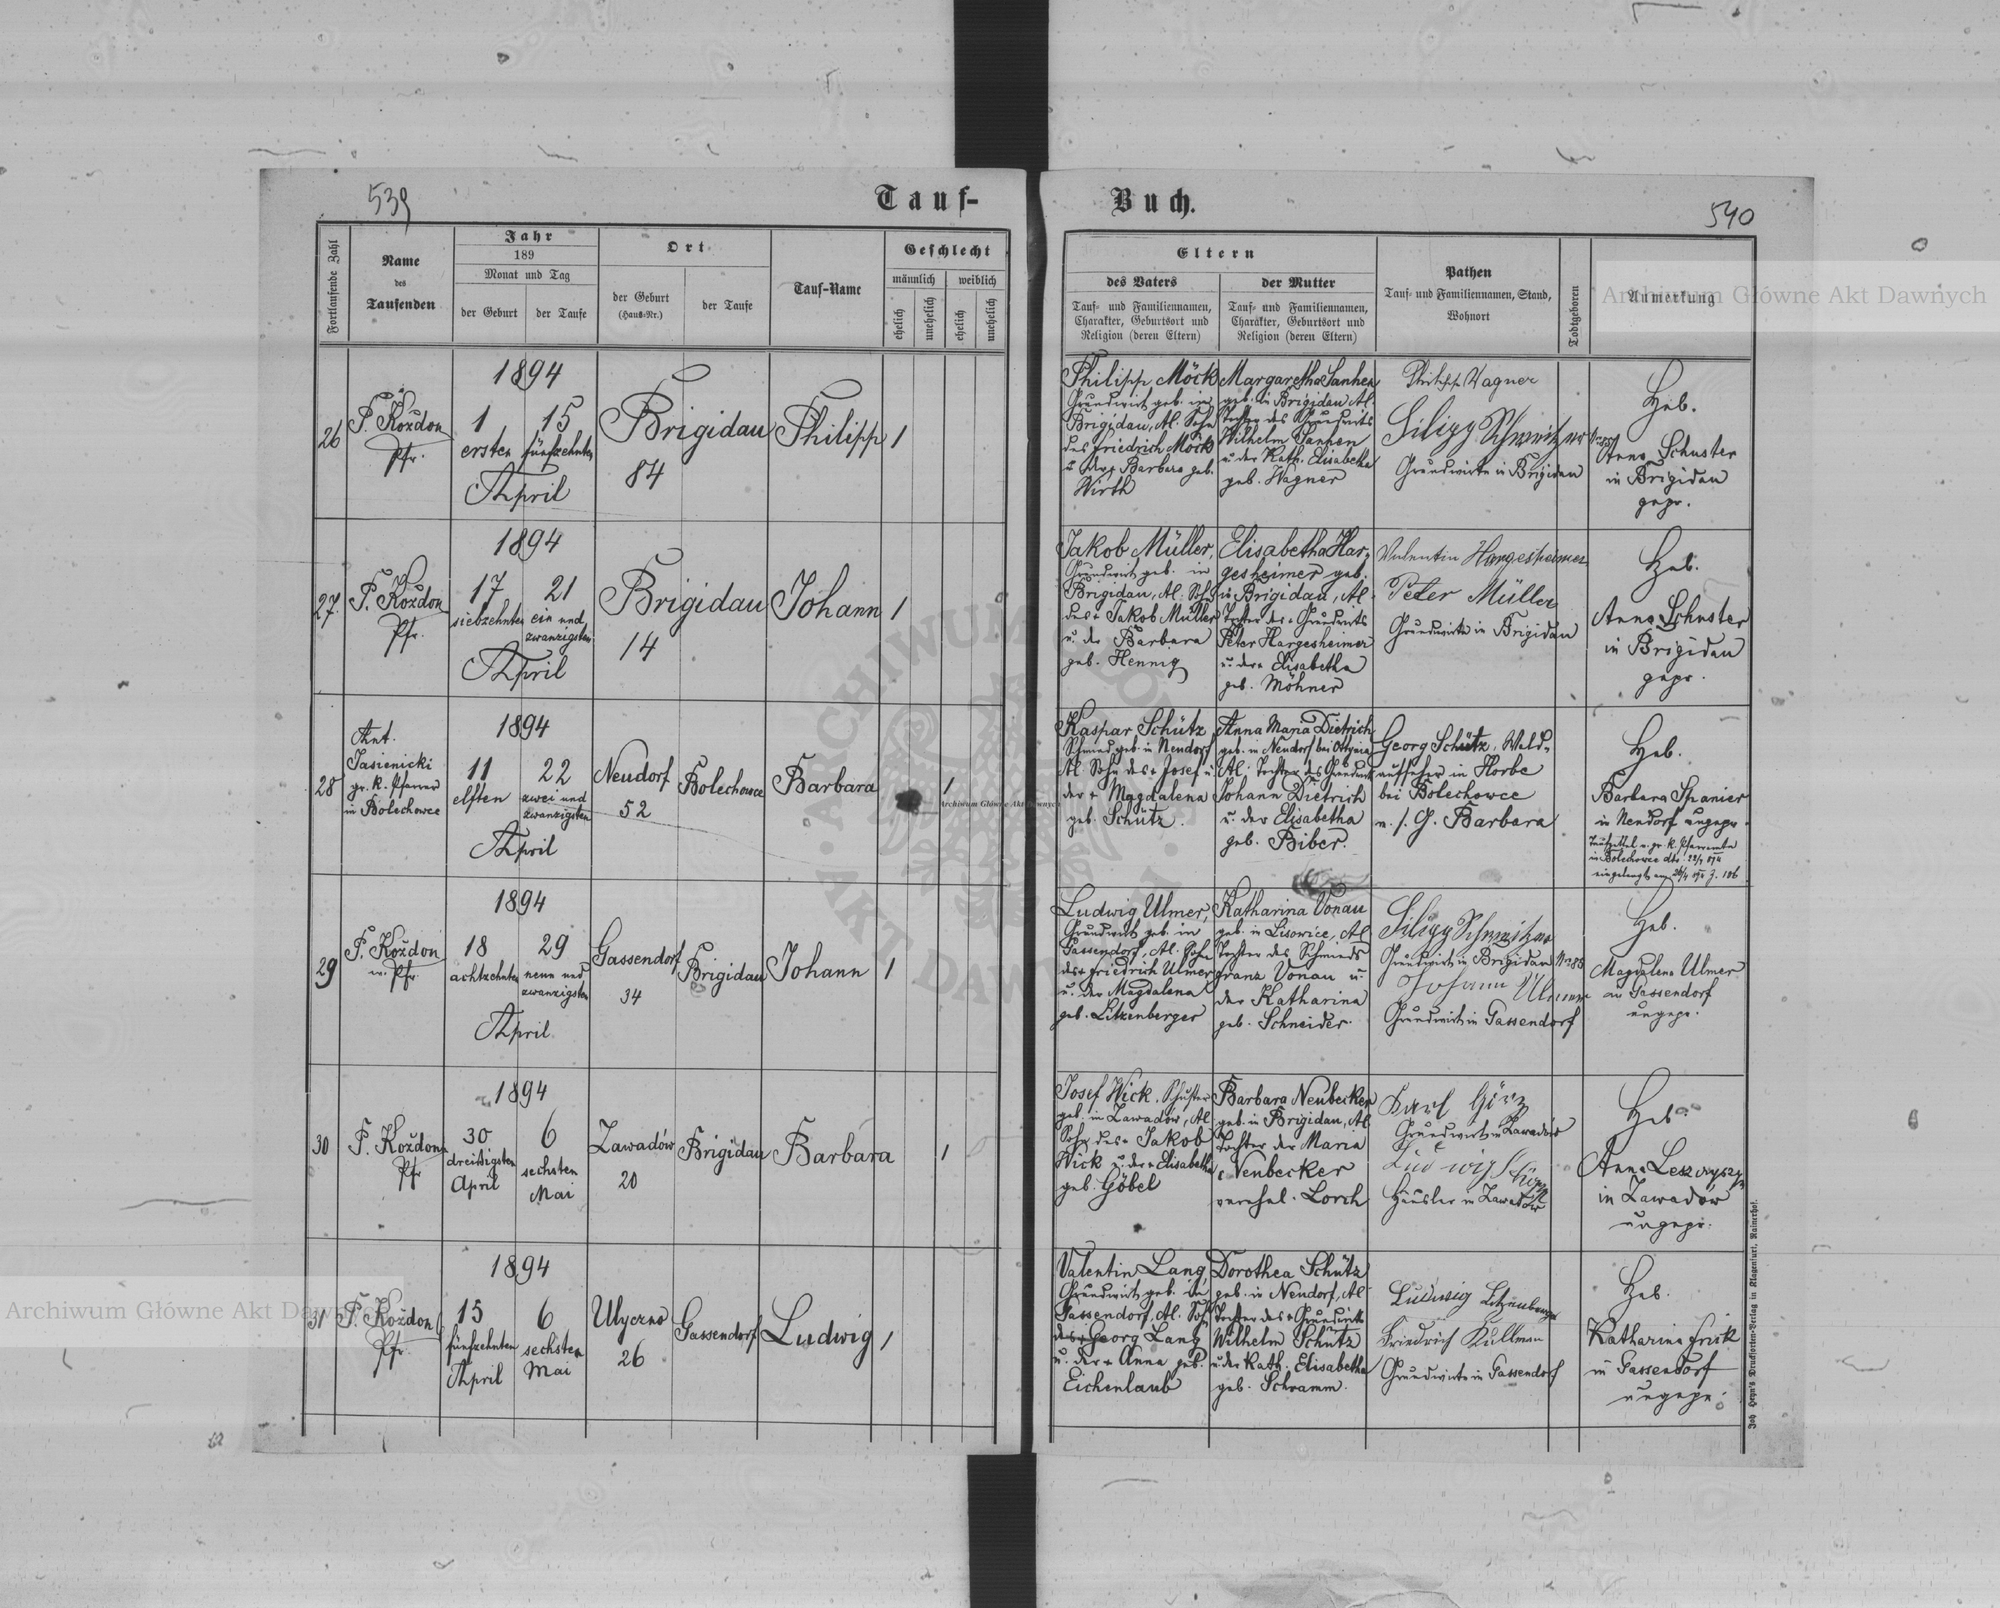 539
Tauf-
Buch.
540
Fortlaufende Zahl
Name
des
Taufenden
Jahr
189
Monat und Tag
der Geburt
der Taufe
Ort
der Geburt
(Haus-Nr.)
der Taufe
Tauf-Name
Geschlecht
männlich
weiblich
ehelich
unehelich
ehelich
unehelich
Eltern
des Vaters
Tauf- und Familiennamen,
Charakter, Geburtsort und
Religion (deren Eltern)
der Mutter
Tauf- und Familiennamen,
Charakter, Geburtsort und
Religion (deren Eltern)
Pathen
Tauf- und Familiennamen, Stand,
Wohnort
Todtgeboren
Anmerkung
26
P. Koždon
Pfr.
1894
1
ersten
15
fünfzehnten
April
Brigidau
84
Philipp
1
Philipp Möck
Grundwirt geb. in
Brigidau, Al. Sohn
des Friedrich Möck
u. der Barbara geb.
Wirth
Margaretha Manhen
geb. in Brigidau, Al.
Tochter des Grundwirts
Wilhelm
u. der Kath. Elisabetha
geb. Wagner
Philipp Wagner
Filipp Schweitzer
Grundwirte in Brigidau
Heb.
Anna Schuster
in Brigidau
gepr.
27.
P. Koždon
Pfr.
1894
17
siebzehnten
21
ein und
zwanzigsten
April
Brigidau
14
Johann
1
Jakob Müller,
Grundwirt geb. in
Brigidau, Al. Sohn
des + Jakob Müller
u. der Barbara
geb. Hennig
Elisabetha Har-
gesheimer geb.
in Brigidau, Al.
Tochter des + Grundwirts
Peter Hargesheimer
u. der + Elisabetha
geb. Möhner
Valentin Hargesheimer
Peter Müller
Grundwirte in Brigidau
Heb.
Anna Schuster
in Brigidau
gepr.
28
Ant.
Jasienicki
gr. k. Pfarrer
in Bolechowce
1894
11
elften
22
zwei und
zwanzigsten
April
Neudorf
52
Bolechowce
Barbara
1
Kaspar Schütz
Schmied geb. in Neudorf
Al. Sohn des + Josef u.
der + Magdalena
geb. Schütz.
Anna Maria Dietrich
geb. in Neudorf bei Ottynia
Al. Tochter des Grundwirts
Johann Dietrich
u. der Elisabetha
geb. Biber.
Georg Schütz, Wald-
aufseher in Horbe
bei Bolechowce
m. s. G. Barbara
Heb.
Barbara Spanier
in Neudorf ungepr.
Taufzettel v. gr. k. Pfarramte
in Bolechowce
Z. 106
29
P. Koždon
Pfr.
1894
18
achtzehnten
29
neun und
zwanzigsten
April
Gassendorf
34
Brigidau
Johann
1
Ludwig Ulmer,
Grundwirt geb. in
Gassendorf, Al. Sohn
des + Friedrich Ulmer
u. der Magdalena
geb. Litzenberger
Katharina Vonau
geb. in Lisowice, Al.
Tochter des Schmieds
Franz Vonau u.
der Katharina
geb. Schneider.
Filipp Schweitzer
Grundwirt in Brigidau
Johann Ulmer
Grundwirt in Gassendorf
Heb.
Magdalena Ulmer
aus Gassendorf
ungepr.
30
P. Koždon
Pfr
1894
30
dreißigsten
April
6
sechsten
Mai
Zawadów
20
Brigidau
Barbara
1
Josef Wick, Schuster
geb. in Zawadów, Al.
Sohn des + Jakob
Wick u. der + Elisabetha
geb. Göbel
Barbara Neubecker
geb. in Brigidau, Al.
Tochter der Maria
Neubecker
verehel. Lorch
Karl Görz
Grundwirt in Zawadów
Ludwig
Häusler in Zawadów
Heb.
Anna
in Zawadów
ungepr.
31
P. Koždon
Pfr.
1894
15
fünfzehnten
April
6
sechsten
Mai
Ulyczno
26
Gassendorf
Ludwig
1
Valentin Lang,
Grundwirt geb. in
Gassendorf, Al. Sohn
des + Georg Lang
u. der + Anna geb.
Eichenlaub
Dorothea Schütz
geb. in Neudorf, Al.
Tochter des + Grundwirts
Wilhelm Schütz
u. der Kath. Elisabetha
geb. Schramm.
Ludwig Litzenberger
Friedrich Kullman
Grundwirte in Gassendorf
Heb.
Katharina Frik
in Gassendorf
ungepr.
Joh. Heyn's Drucksorten-Verlag in Klagenfurt, Rainerhof.
Archiwum Główne Akt Dawnych
Archiwum Główne Akt Dawnych
Archiwum Główne Akt Dawnych